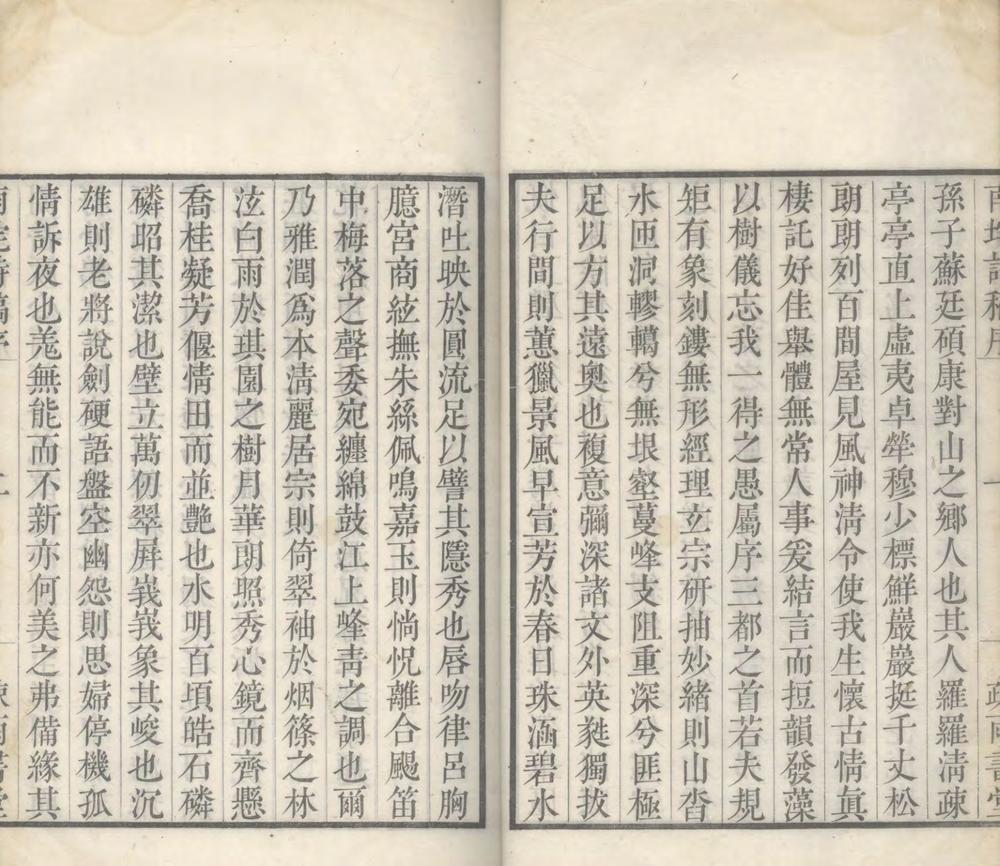 孫子蘇廷碩康對山之鄉人也其人羅羅清疎
亭亭直上虛夷卓犖穆少標鮮巖巖挺千丈松
朗朗列百間屋見風神清令使我生懷古情眞
棲託好佳舉體無常人事爰結言而短韻發藻
以樹儀忘我一得之愚屬序三都之首若夫規
矩有象刻鏤無形經理玄宗研抽妙緒則山沓
水匝洞轇轕兮無垠壑蔓峰支阻重深兮匪極
足以方其遠奧也複意彌深諸文外英蕤獨拔
夫行間則蕙獵景風早宣芳於春日珠涵碧水
潛吐映於圓流足以譬其隱秀也唇吻律呂胸
臆宮商絃撫朱絲佩鳴嘉玉則惝怳離合颺笛
中梅落之聲委宛纏綿鼓江上峰青之調也爾
乃雅潤爲本清麗居宗則倚翠袖於烟篠之林
泫白雨於琪園之樹月華朗照秀心鏡而齊懸
喬桂凝芳偃情田而並艷也水明百頃皓石磷
磷昭其潔也壁立萬仞翠屛峩峩象其峻也沉
雄則老將說劍硬語盤空幽怨則思婦停機孤
情訴夜也羗無能而不新亦何美之弗備緣其
二